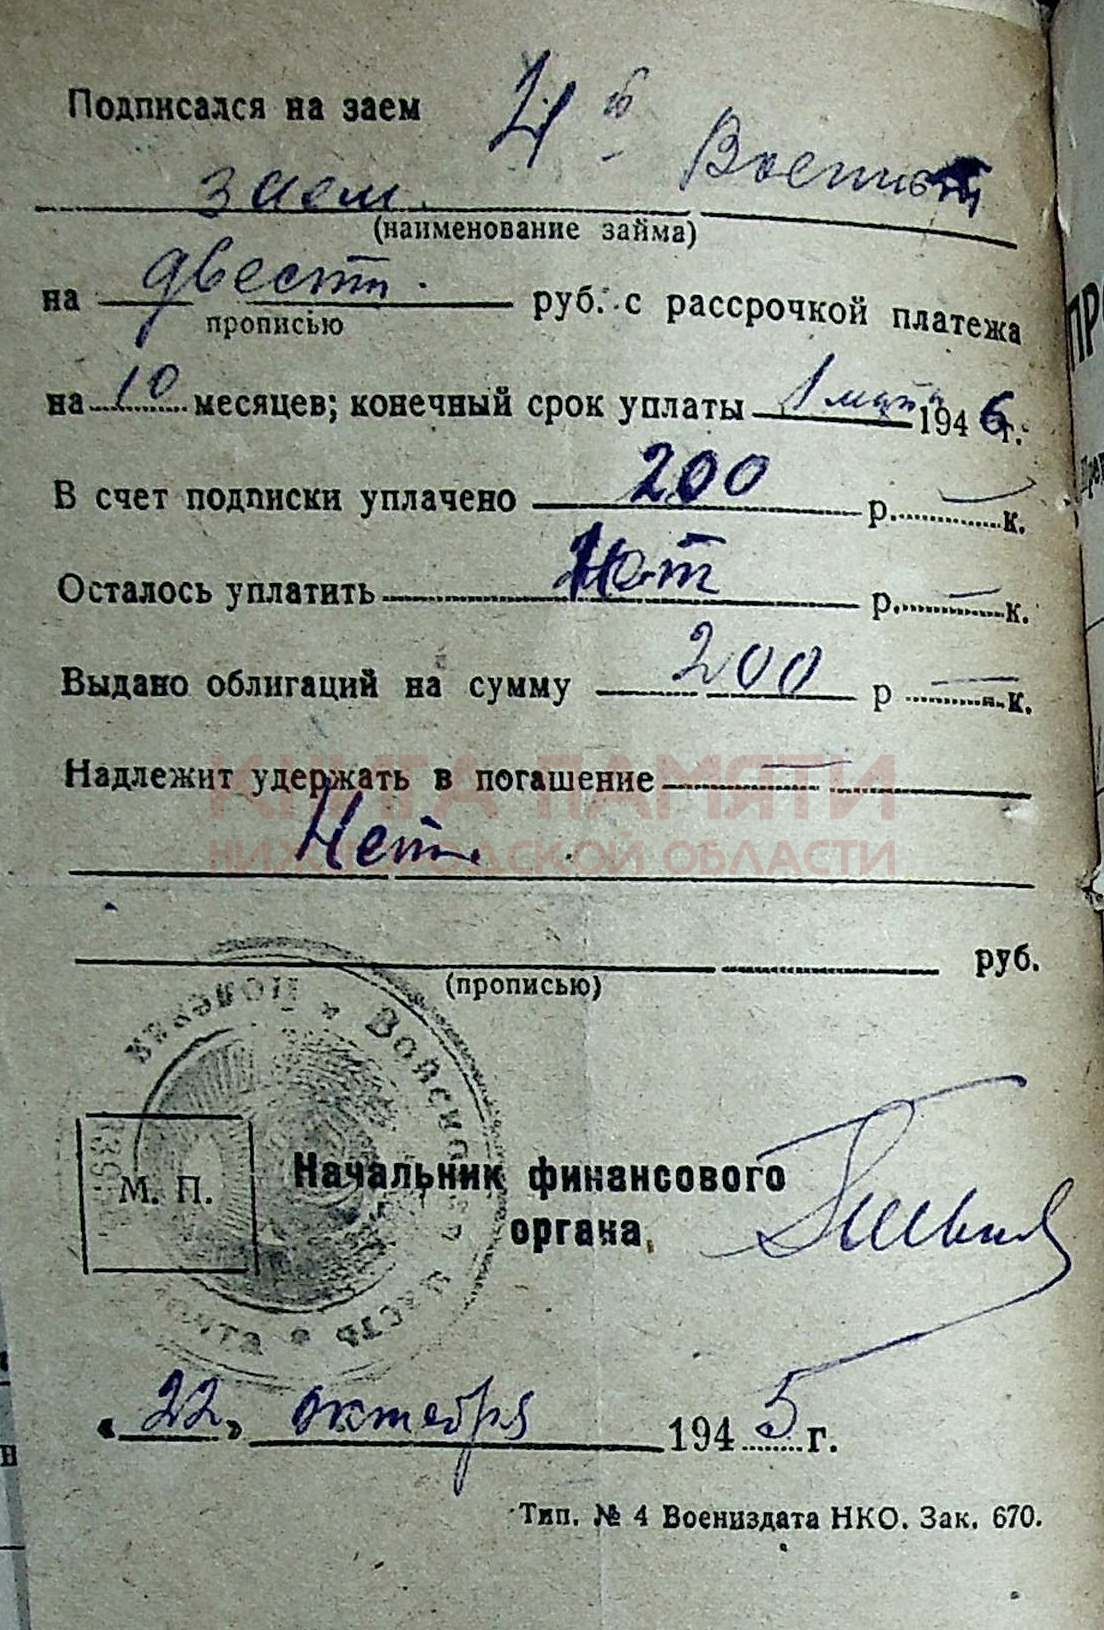 Подписался на заем 4й Военный
заем
(наименование займа)
на двести руб. с рассрочкой платежа
прописью
на 10 месяцев; конечный срок уплаты 1 марта 1946 г.
В счет подписки уплачено 200 р. — к.
Осталось уплатить Нет р. — к.
Выдано облигаций на сумму 200 р — к.
Надлежит удержать в погашение —
КНИГА ПАМЯТИ
Нет
НИЖЕГОРОДСКОЙ ОБЛАСТИ
руб.
(прописью)
Полевая * Войсковая часть * почта
М. П.
Начальник финансового
органа
« 22 » октября 1945 г.
Тип. № 4 Воениздата НКО. Зак. 670.